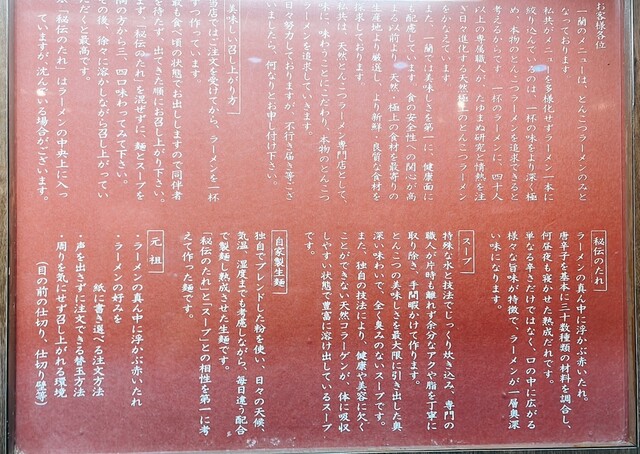 お客様各位
一蘭のメニューは、とんこつラーメンのみと
なっております
私共がメニューを多様化せずラーメン一本に
絞り込んでいるのは、一杯の味をより深く極
め、本物のとんこつラーメンを追求できると
考えるからです 一杯のラーメンに、四十人
以上の専属職人が、たゆまぬ研究と情熱を注
ぎ日々進化する天然極上のとんこつラーメン
をかなえています
また、一蘭では美味しさを第一に、健康面に
も配慮しています。食の安全性への関心が高
まる以前より、天然、極上の食材を最寄りの
生産地より厳選し、より新鮮、良質な食材を
探求しております。
私共は、天然とんこつラーメン専門店として、
味に、味わうことにこだわり、本物のとんこつ
ラーメンを追求していきます。
日々努力しておりますが、不行き届き等ござ
いましたら、何なりとお申し付け下さい。
美味しい召し上がり方
当店では、ご注文を受けてから、ラーメンを一杯
ずつ作っています。
最も食べ頃の状態でお出ししますので同伴者
を待たず、出てきた順にお召し上がり下さい。
まず、「秘伝のたれ」を混ぜずに、麺とスープを
の方から三、四口味わってみて下さい。
その後、徐々に溶かしながら召し上がってい
ただくと最高です。
「秘伝のたれ」はラーメンの中央上に入っ
ていますが、沈んでいる場合がございます。
秘伝のたれ
ラーメンの真ん中に浮かぶ赤いたれ。
唐辛子を基本に三十数種類の材料を調合し、
何昼夜も寝かせた熟成だれです。
単なる辛さだけではなく、口の中に広がる
様々な旨味が特徴で、ラーメンが一層奥深
い味になります。
スープ
特殊な水と技法でじっくり炊き込み、専門の
職人が片時も離れず余分なアクや脂を丁寧に
取り除き、手間暇かけて作ります。
とんこつの美味しさを最大限に引き出した奥
深い味わいで、全く臭みのないスープです。
また、独自の技法により、健康や美容に欠く
ことができない天然コラーゲンが、体に吸収
しやすい状態で豊富に溶け出しているスープ
です。
自家製生麺
独自でブレンドした粉を使い、日々の天候、
気温、湿度までも考慮しながら、毎日違う配合
で製麺し熟成させた生麺です。
「秘伝のたれ」と「スープ」との相性を第一に考
えて作った麺です。
元 祖
・ラーメンの真ん中に浮かぶ赤いたれ
・ラーメンの好みを
紙に書き選べる注文方法
・声を出さずに注文できる替玉方法
・周りを気にせず召し上がれる環境
(目の前の仕切り、仕切り壁等)